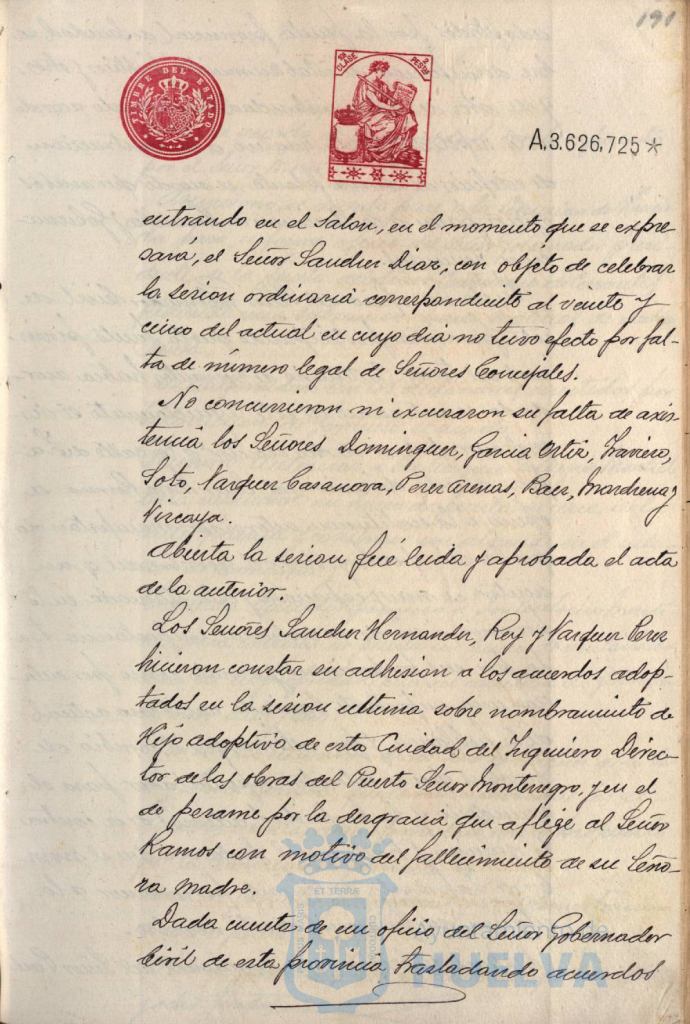 191
TIMBRE DEL ESTADO
10ª CLASE
2 PESETAS
A.3.626.725*
entrando en el Salon, en el momento que se expre-
sará, el Señor Sanchez Diaz, con objeto de celebrar
la sesion ordinaria correspondiente al veinte y
cinco del actual en cuyo dia no tuvo efecto por fal-
ta de número legal de Señores Concejales.
No concurrieron ni excusaron su falta de axis-
tencia los Señores Dominguez, Garcia Ortiz, Traviero,
Soto, Vazquez Casanova, Perez Arenas, Baez, Mardrena y
Vizcaya.
Abierta la sesion fué leida y aprobada el acta
de la anterior.
Los Señores Sanchez Hernandez, Rey y Vazquez Perez
hicieron constar su adhesion á los acuerdos adop-
tados en la sesion ultima sobre nombramiento de
Hijo adoptivo de esta Ciudad del Ingeniero Direc-
tor de las obras del Puerto Señor Montenegro, y en el
de pesame por la desgracia que aflige al Señor
Ramos con motivo del fallecimiento de su Seño-
ra madre.
Dada cuenta de un oficio del Señor Gobernador
Civil de esta provincia trasladando acuerdos
ET TERRÆ
Ayuntamiento de
HUELVA